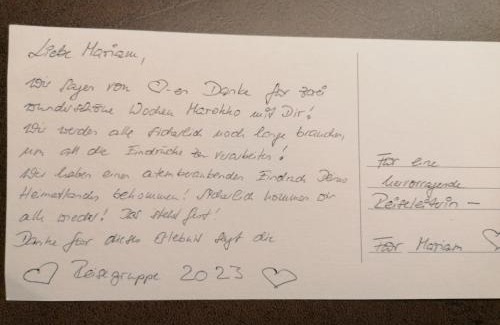 Liebe Mariam,
Wir sagen von ♡-en Danke für zwei
wunderschöne Wochen Marokko mit Dir!
Wir werden alle sicherlich noch lange brauchen,
um all die Eindrücke zu verarbeiten!
Wir haben einen atemberaubenden Eindruck Deines
Heimatlandes bekommen! Sicherlich kommen wir
alle wieder! Das steht fest!
Danke für dieses Erlebnis sagt die
♡ Reisegruppe 2023 ♡
Für eine
hervorragende
Reiseleiterin –
Für Mariam ♡